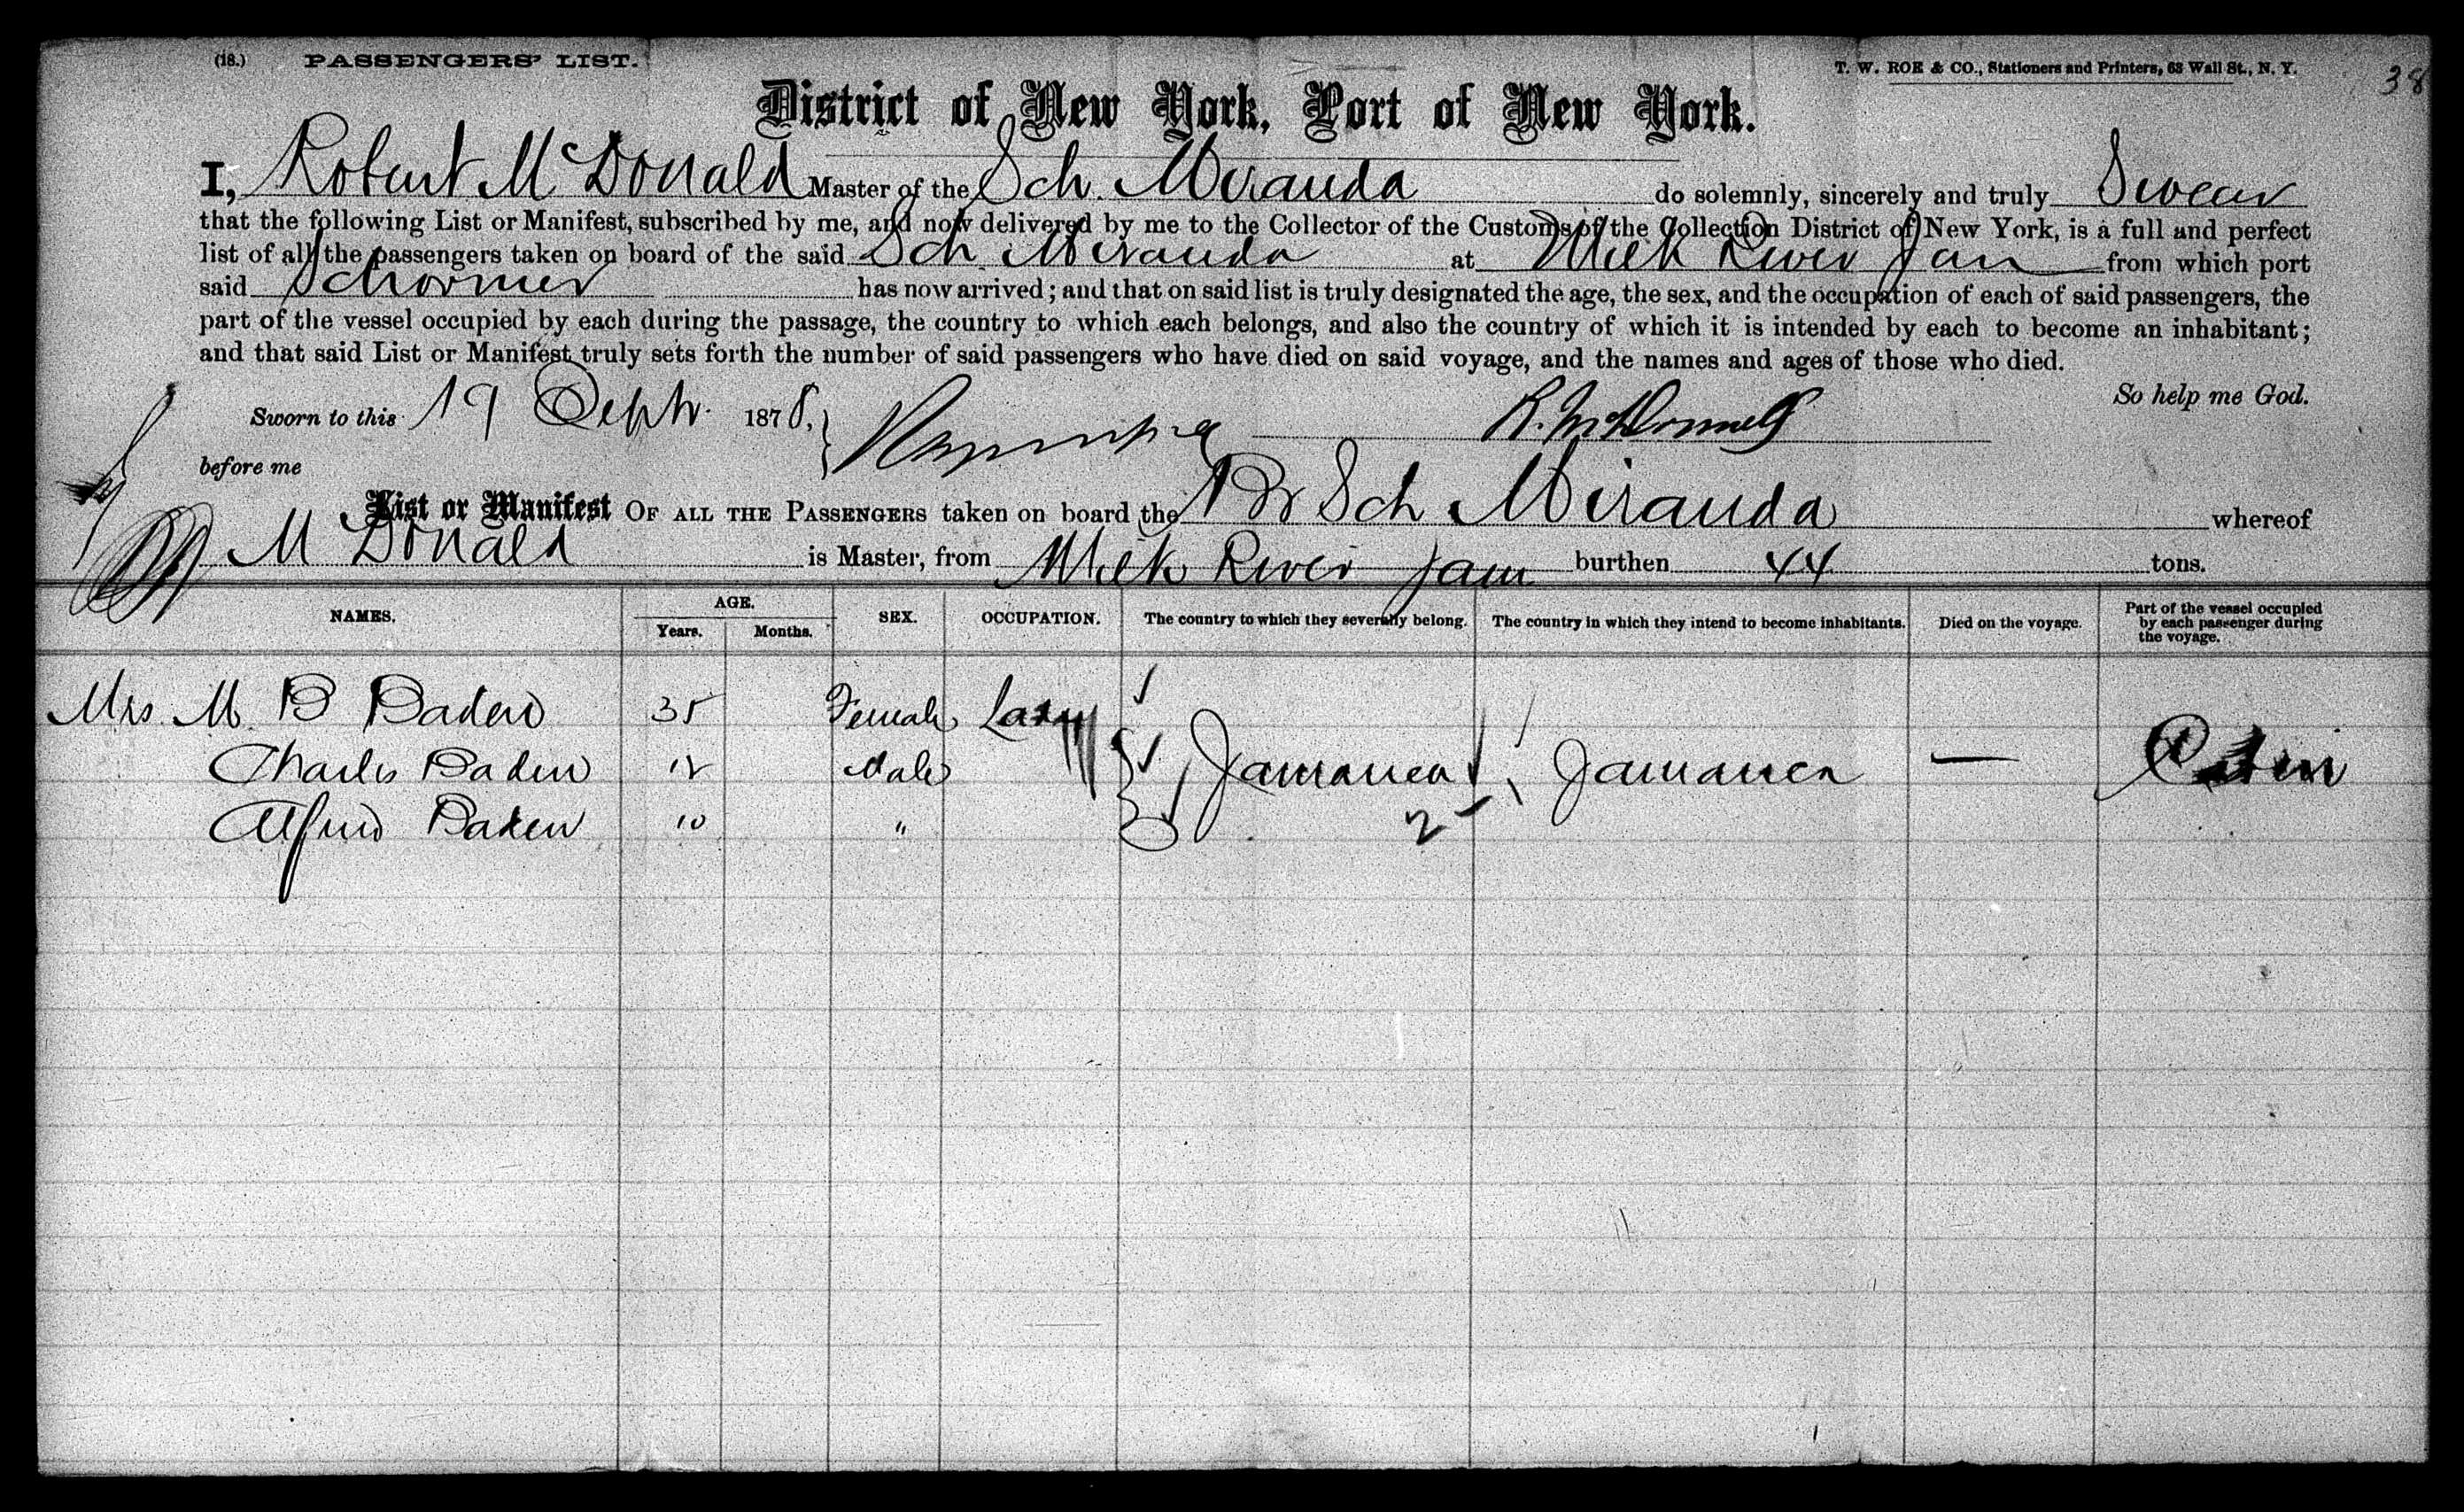 (18.) PASSENGERS' LIST. T. W. ROE & CO., Stationers and Printers, 63 Wall St., N. Y. 38
District of New York, Port of New York.
I, Robert McDonald Master of the Sch. Miranda do solemnly, sincerely and truly Swear
that the following List or Manifest, subscribed by me, and now delivered by me to the Collector of the Customs of the Collection District of New York, is a full and perfect
list of all the passengers taken on board of the said Sch Miranda at Milk River Jam from which port
said Schooner has now arrived; and that on said list is truly designated the age, the sex, and the occupation of each of said passengers, the
part of the vessel occupied by each during the passage, the country to which each belongs, and also the country of which it is intended by each to become an inhabitant;
and that said List or Manifest truly sets forth the number of said passengers who have died on said voyage, and the names and ages of those who died.
So help me God.
Sworn to this 19 Septr. 1878,
before me
List or Manifest OF ALL THE PASSENGERS taken on board the Br Sch Miranda whereof
McDonald is Master, from Milk River Jam burthen 44 tons.
NAMES. AGE. Years. Months. SEX. OCCUPATION. The country to which they severally belong. The country in which they intend to become inhabitants. Died on the voyage. Part of the vessel occupied by each passenger during the voyage.
Mrs. M. B Baden 35 Female Lady
Charles Baden 12 Male Jamaica Jamaica — Cabin
Alfred Baden 10 " 2